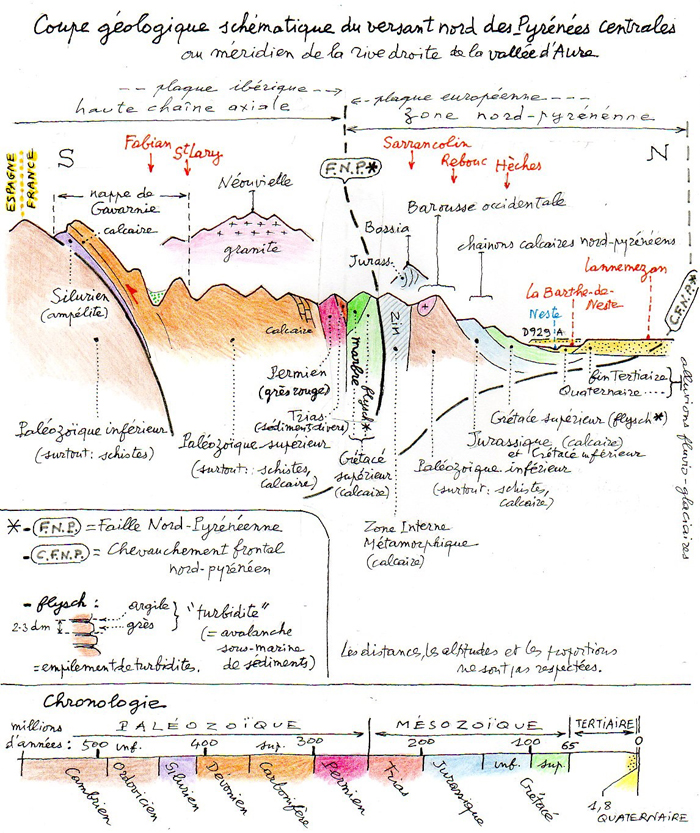 Coupe géologique schématique du versant nord des Pyrénées centrales
au méridien de la rive droite de la vallée d'Aure
plaque ibérique
plaque européenne
haute chaîne axiale
zone nord-pyrénénne
ESPAGNE
FRANCE
S
N
Fabian
St Lary
F.N.P.*
Sarrancolin
Rebouc
Hèches
nappe de
Gavarnie
calcaire
Néouvielle
granite
Bassia
Jurass.
Barousse occidentale
chainons calcaires nord-pyrénéens
Lannemezan
La Barthe-de-
Neste
Neste
D929-A
C.F.N.P.*
Silurien
(ampélite)
calcaire
marbre
flysch*
ZIM
Permien
(grès rouge)
Trias
(sédiments divers)
Crétacé
supérieur
(calcaire)
Paléozoïque inférieur
(surtout: schistes)
Paléozoïque supérieur
(surtout: schistes,
calcaire)
fin Tertiaire
Quaternaire
alluvions fluvio-glaciaires
Crétacé supérieur (flysch*)
Jurassique (calcaire)
et Crétacé inférieur
Paléozoïque inférieur
(surtout: schistes,
calcaire)
Zone Interne
Métamorphique
(calcaire)
*-F.N.P. = Faille Nord-Pyrénéenne
-C.F.N.P. = Chevauchement frontal
nord-pyrénéen
-flysch:
2-3 dm
argile
grès
"turbidite"
(= avalanche
sous-marine
de sédiments)
=empilement de turbidites.
Les distances, les altitudes et les proportions
ne sont pas respectées.
Chronologie
millions
d'années:
PALÉOZOÏQUE
MÉSOZOÏQUE
TERTIAIRE
500 inf. 400 sup. 300 200 100 65 0
Cambrien
Ordovicien
Silurien
Dévonien
Carbonifère
Permien
Trias
Jurassique
inf.
sup.
Crétacé
1,8
QUATERNAIRE